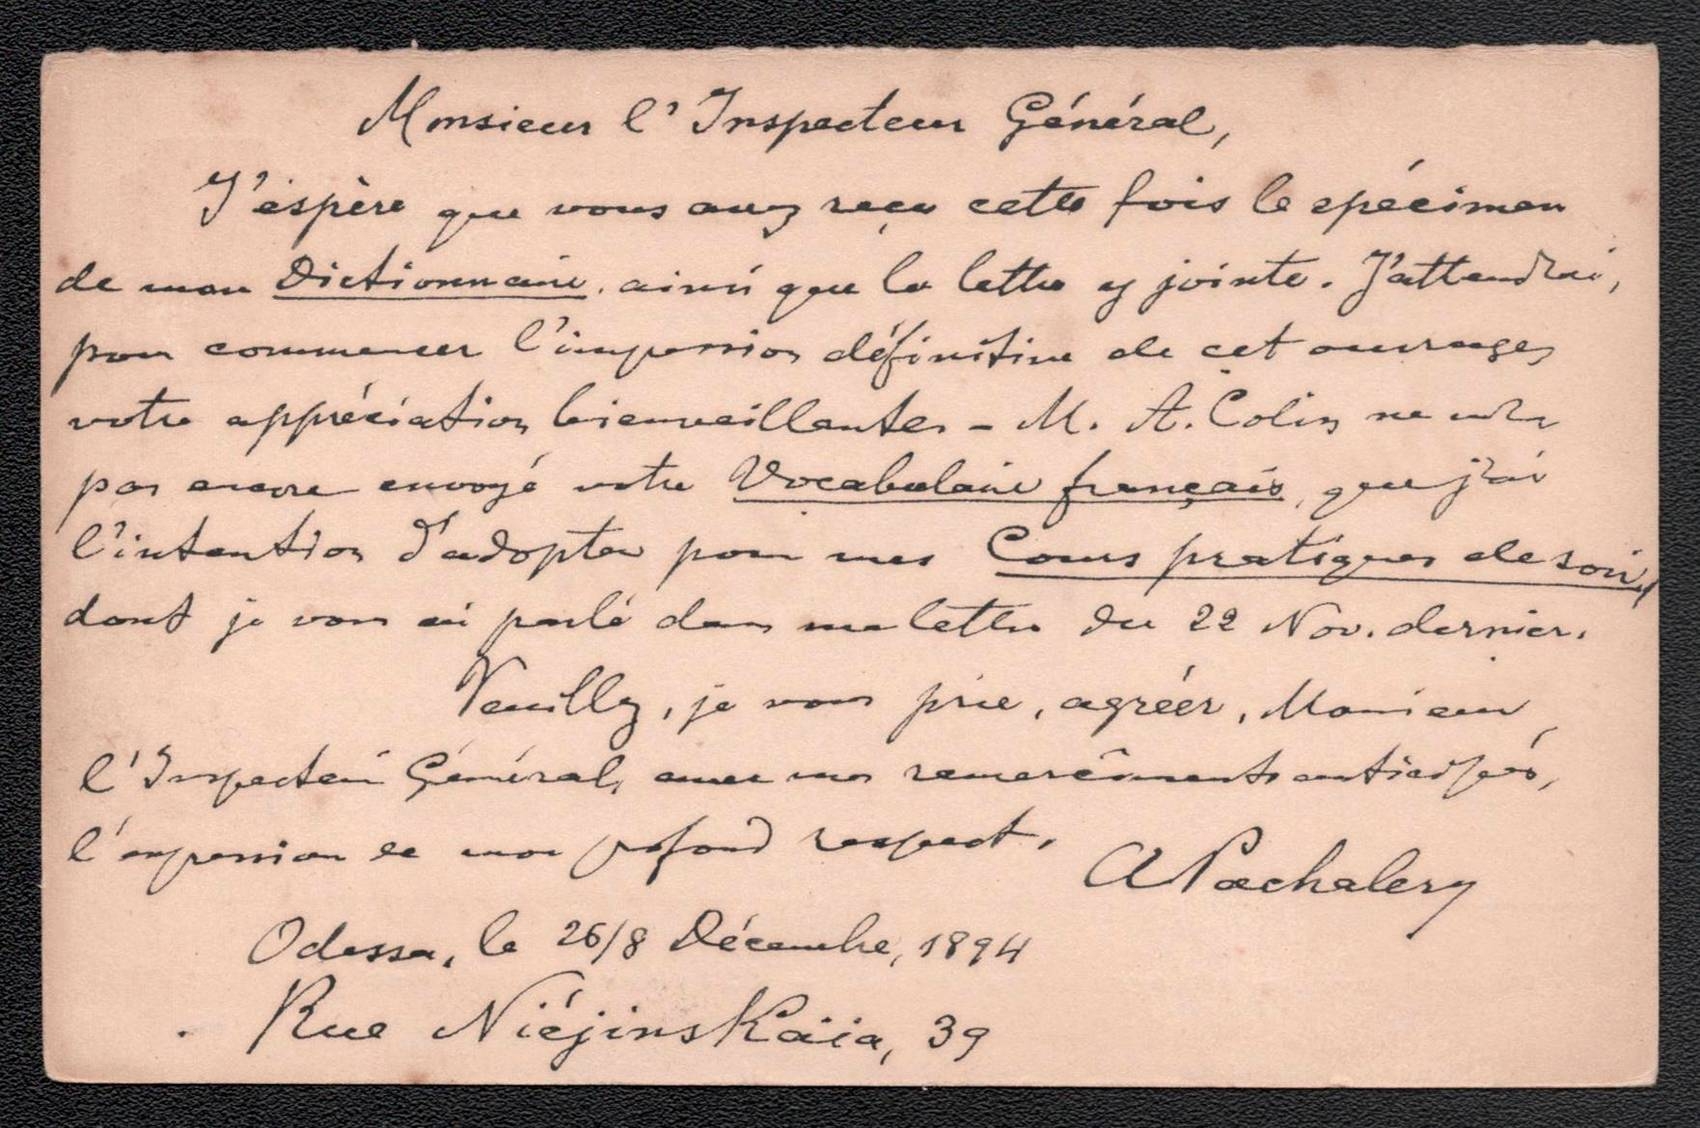 Monsieur l'Inspecteur Général,
J'espère que vous avez reçu cette fois le spécimen
de mon Dictionnaire, ainsi que la lettre y jointe. J'attendrai,
pour commencer l'impression définitive de cet ouvrage,
votre appréciation bienveillante. – M. A. Colin ne m'a
pas encore envoyé votre Vocabulaire français, que j'ai
l'intention d'adopter pour mes Cours pratiques de soir,
dont je vous ai parlé dans ma lettre du 22 Nov. dernier.
Veuillez, je vous prie, agréer, Monsieur
l'Inspecteur Général, avec mes remercîments anticipés,
l'expression de mon profond respect.
A Pachalery
Odessa, le 26/8 Décembre, 1894
Rue Niéjinskaïa, 39